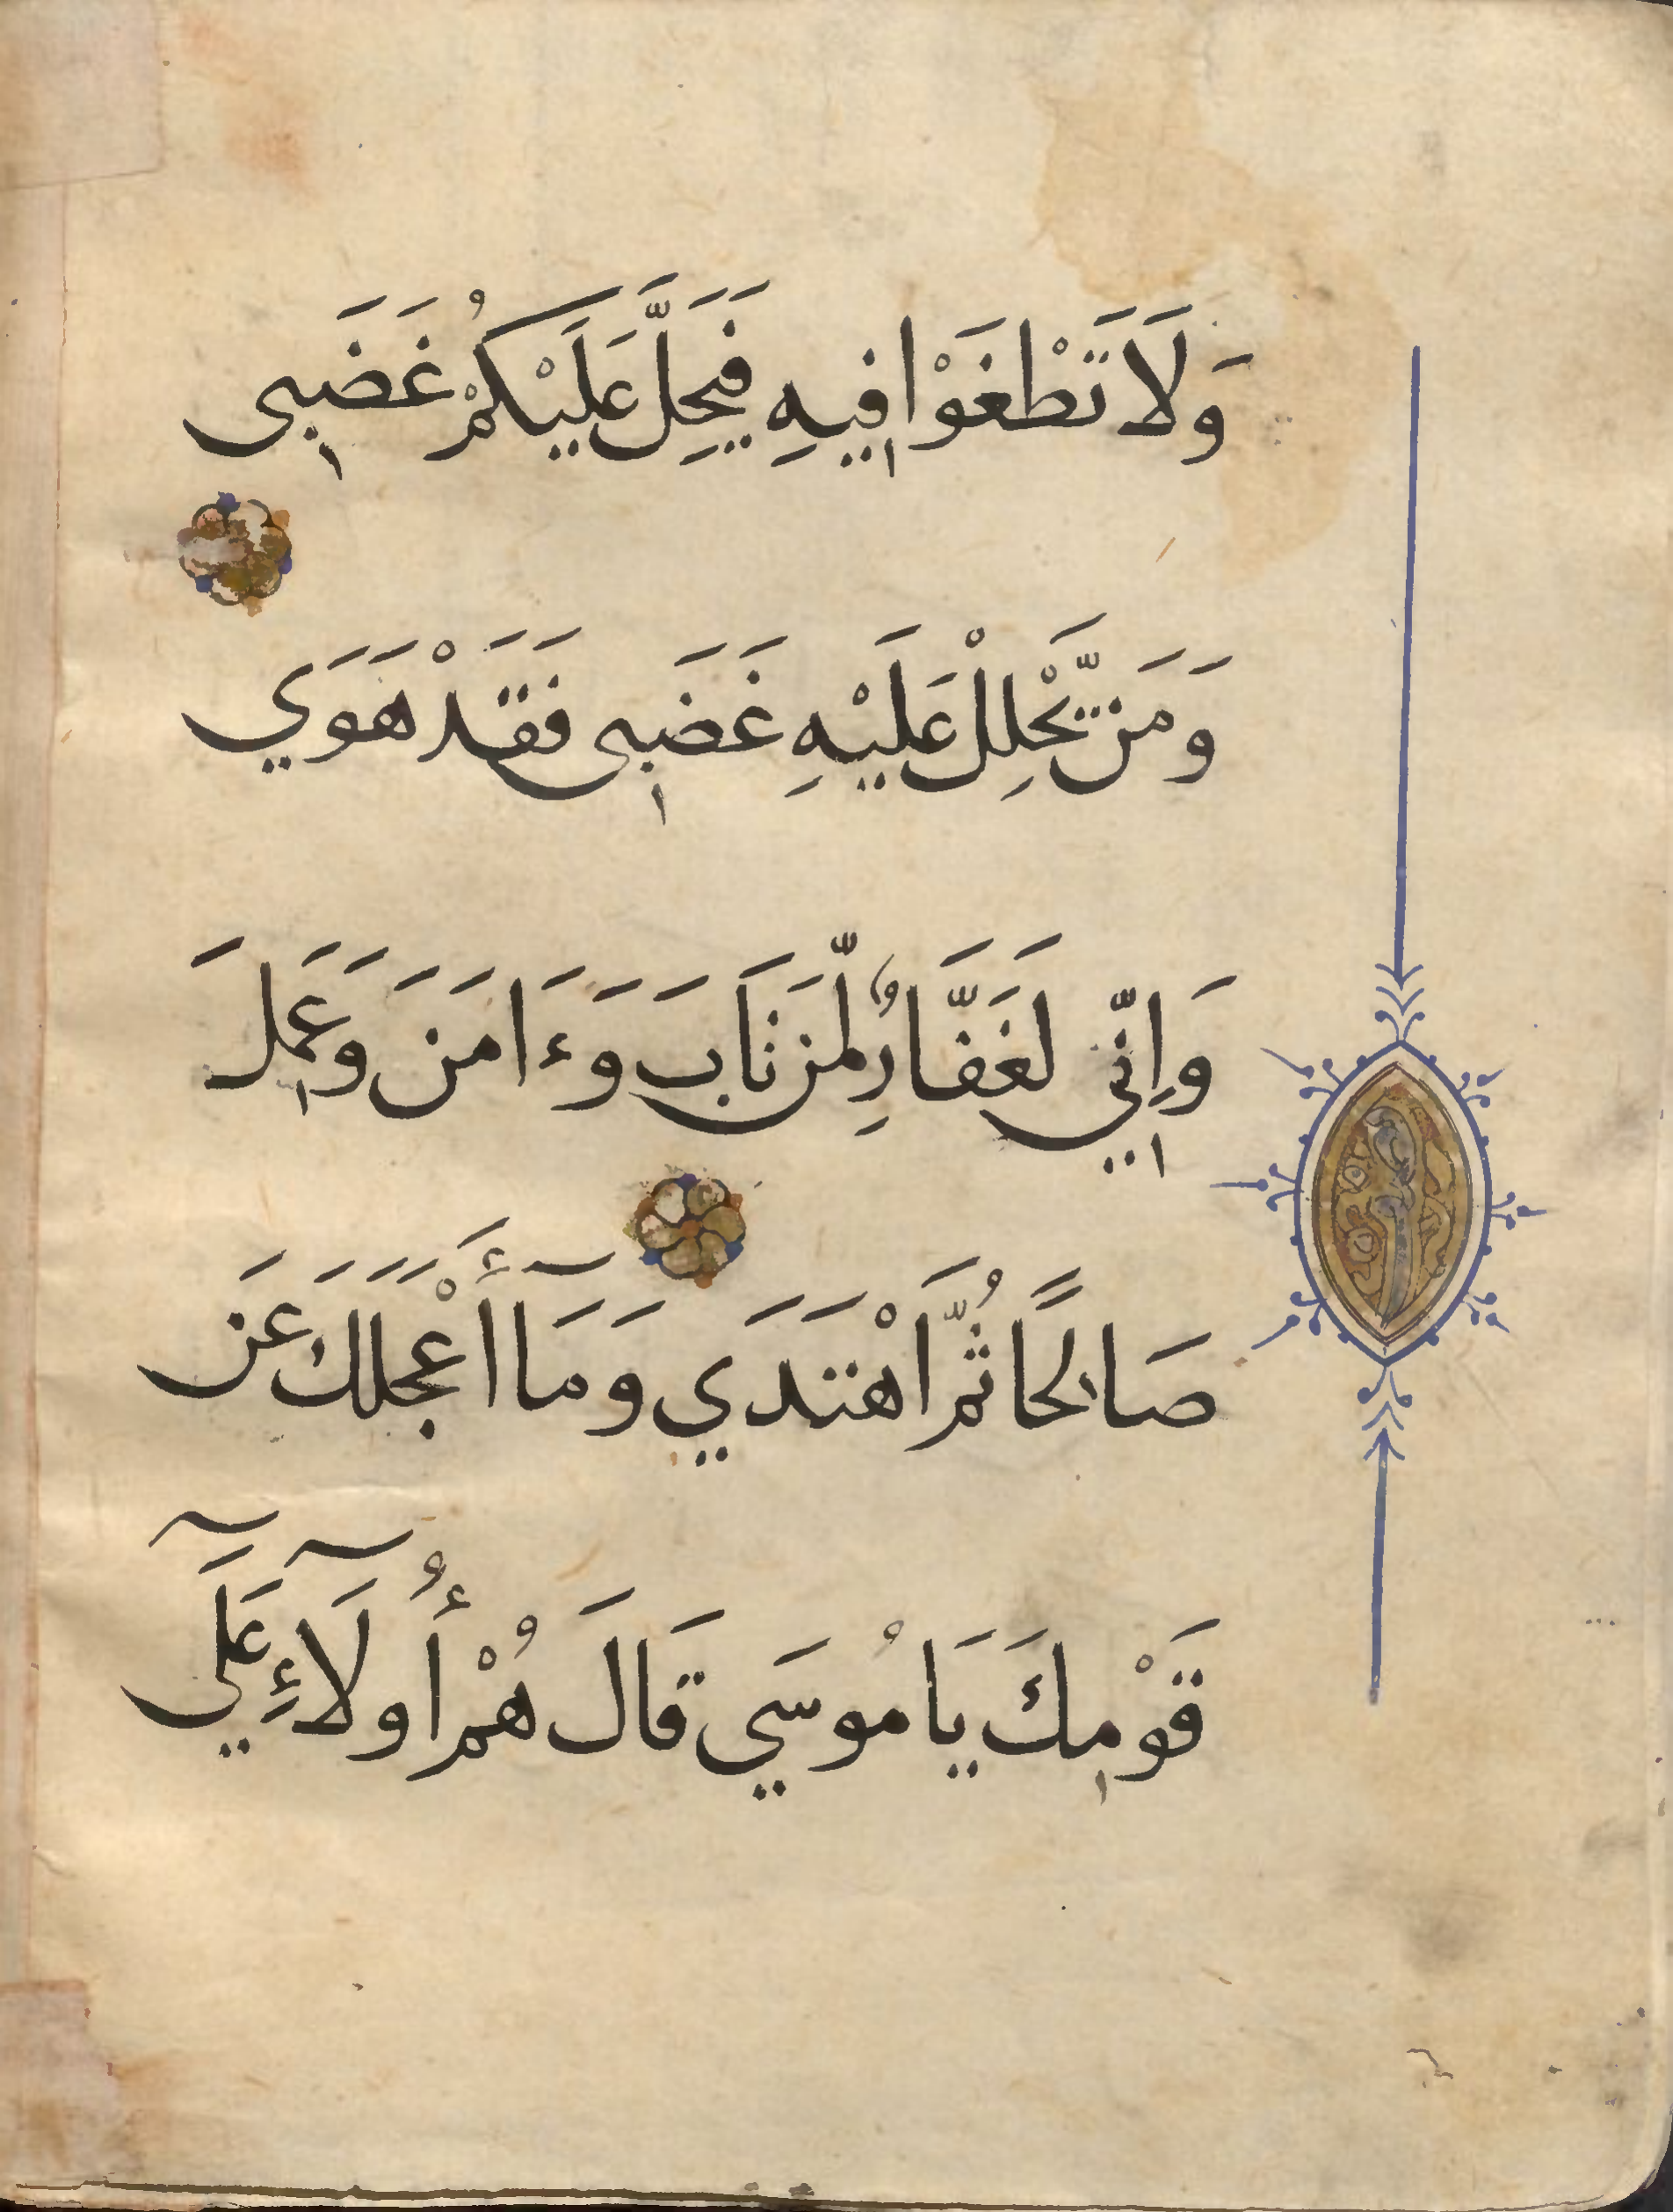 وَلَا تَطْغَوْا فِيهِ فَيَحِلَّ عَلَيْكُمْ غَضَبِى
وَمَن يَّحْلِلْ عَلَيْهِ غَضَبِى فَقَدْ هَوَي
وَاِنّي لَغَفَّارٌ لِّمَن تَابَ وَءَامَنَ وَعَمِلَ
صَالِحًا ثُمَّ اهْتَدَي وَمَآ أَعْجَلَكَ عَن
قَوْمِكَ يَامُوسَي قَالَ هُمْ أُولَآءِ عَلَي